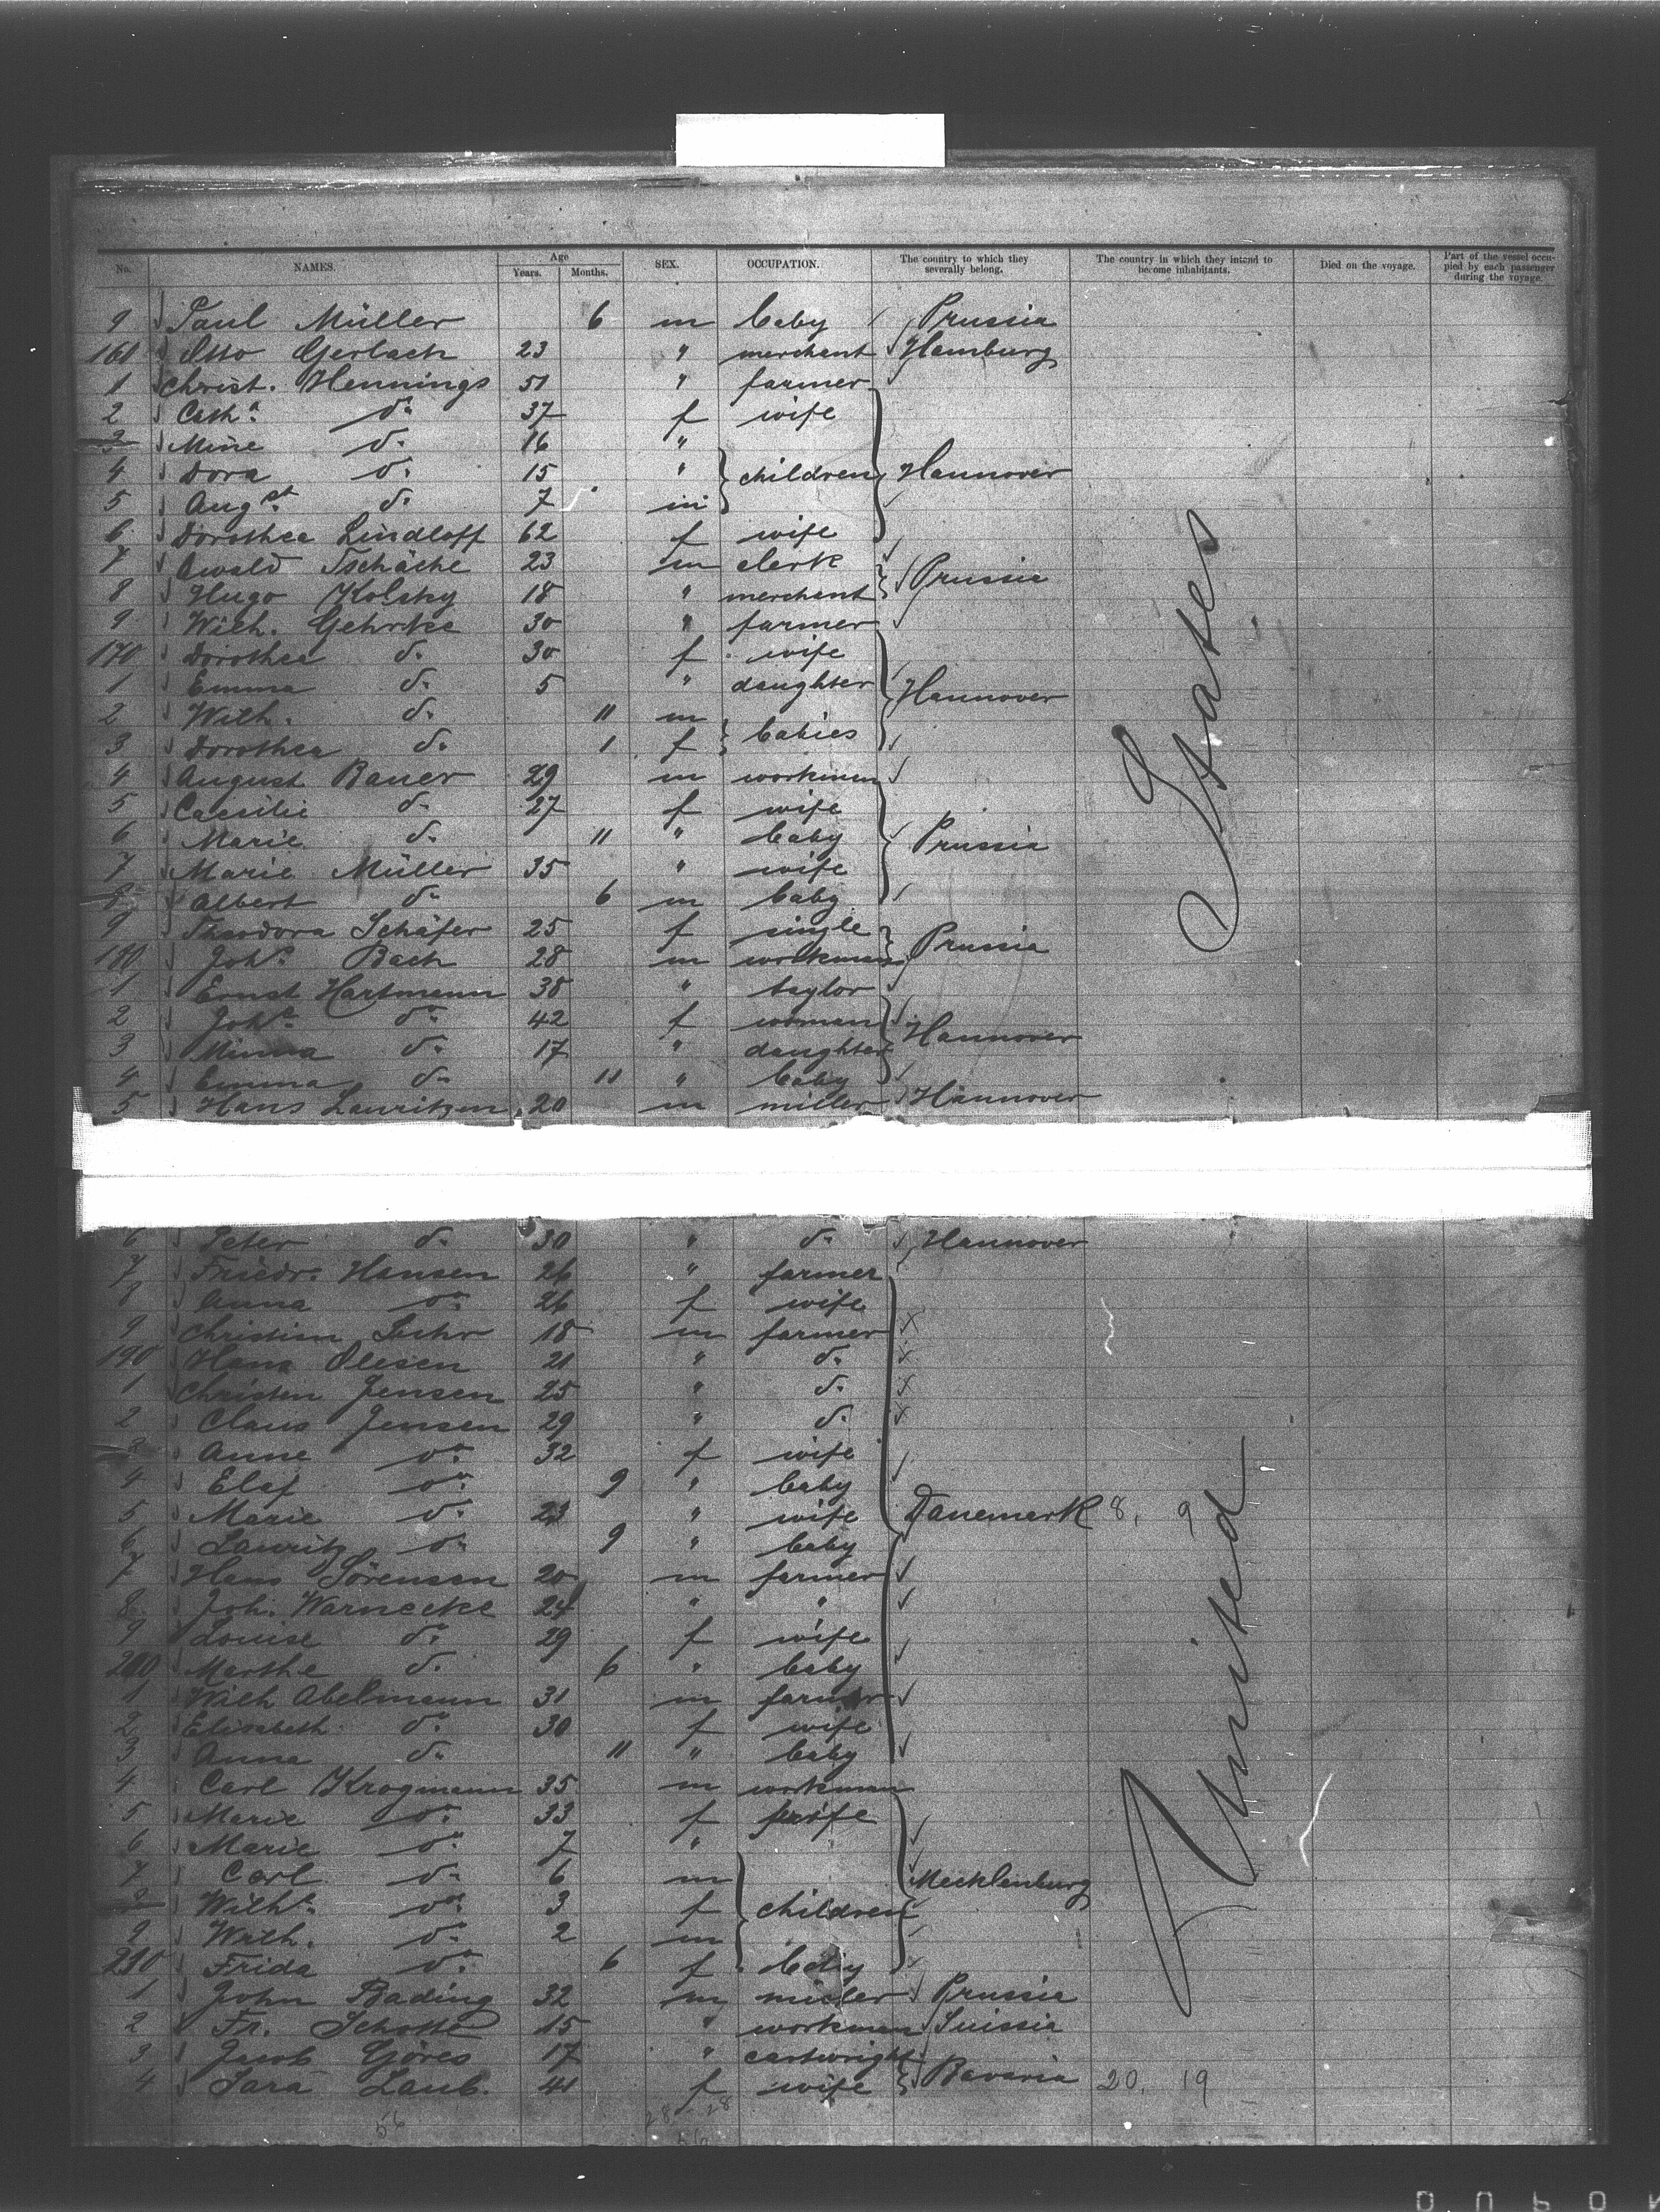 No. NAMES. Age Years. Months. SEX. OCCUPATION. The country to which they severally belong. The country in which they intend to become inhabitants. Died on the voyage. Part of the vessel occupied by each passenger during the voyage.
9 Paul Müller 6 m baby Prussia
160 Otto Gerlach 23 " merchant Hamburg
1 Christ. Hennings 51 " farmer
2 Cath.a do. 37 f wife
3 Mine do. 16 "
4 Dora do. 15 " children Hannover
5 Augst. do. 7 m
6 Dorothea Lindloff 62 f wife
7 Awald Tschäche 23 m clerk
8 Hugo Kolsky 18 " merchant Prussia
9 Wilh. Gehrke 30 " farmer
170 Dorothea do. 30 f wife
1 Emma do. 5 " daughter Hannover
2 Wilh. do. 11 m
3 Dorothea do. 1 f babies
4 August Bauer 29 m workman
5 Caecilie do. 27 f wife
6 Marie do. 11 " baby Prussia
7 Marie Müller 35 " wife
8 Albert do. 6 m baby
9 Theodora Schäfer 25 f single
180 Johs. Bach 28 m workman Prussia
1 Ernst Hartmann 38 " taylor
2 Joh.e do. 42 f woman Hannover
3 Minna do. 17 " daughter
4 Emma do. 11 " baby
5 Hans Lauritzen 20 m miller Hannover
6 Peter do. 30 " do. Hannover
7 Friedr. Hansen 26 " farmer
8 Anna do. 26 f wife
9 Christian 18 m farmer
190 Hans Olesen 21 " do.
1 Christen Jensen 25 " do.
2 Claus Jensen 29 " do.
3 Anne do. 32 f wife
4 Elsf do. 9 " baby
5 Marie do. 23 " wife Danemark 8, 9
6 Lauritz do. 9 " baby
7 Hans Sörensen 20 m farmer
8 Joh. Warnecke 24 " "
9 Louise do. 29 f wife
200 Marthe do. 6 " baby
1 Wilh Abelmann 31 m farmer
2 Elisabeth do. 30 f wife
3 Anna do. 11 " baby
4 Carl Krogmann 35 m workman
5 Marie do. 33 f wife
6 Marie do. 7 "
7 Carl do. 6 m Mecklenburg
8 Wilh.e do. 3 f children
9 Wilh. do. 2 m
210 Frida do. 6 f baby
1 John Rading 32 m miller Prussia
2 Fr. Schotte 15 " workman Suissia
3 Jacob Göres 17 " cartwright
4 Sara Laub. 41 f wife Bavaria 20, 19
56 28 28
56
United States